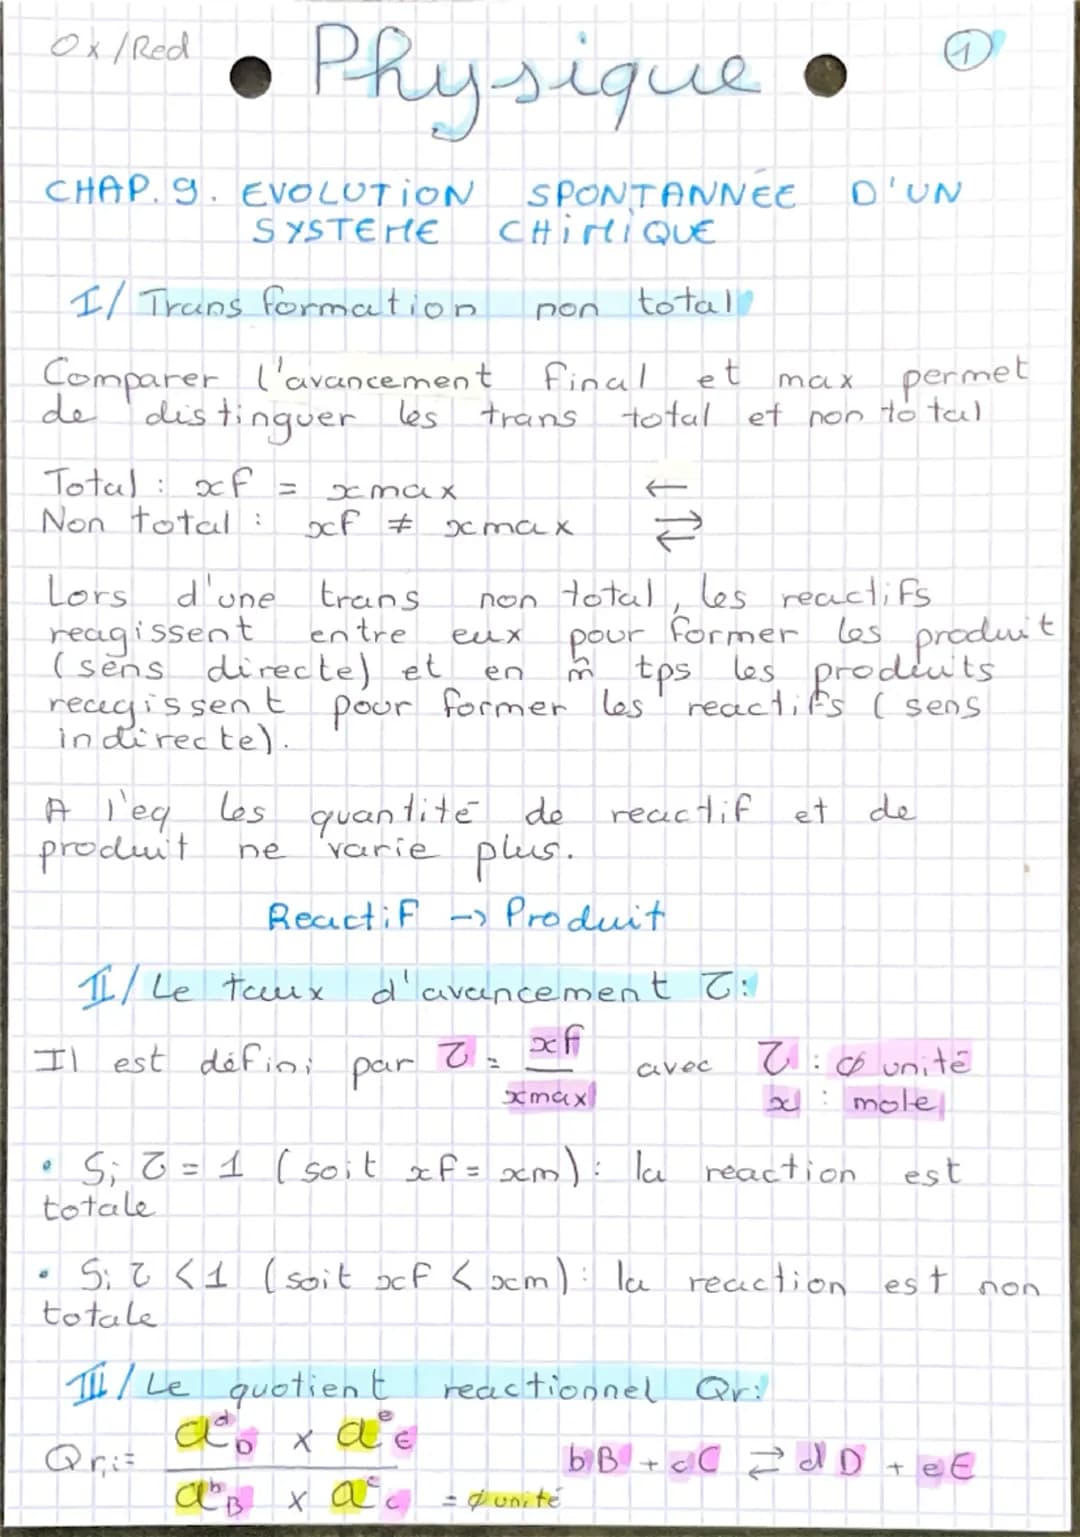 Ox/Red
Physique
1
CHAP.9. EVOLUTION SPONTANNÉE D'UN
SYSTEME CHIMIQUE
I/ Transformation non total
Comparer l'avancement final et max permet
de distinguer les trans total et non total
Total : xf = xmax ←
Non total : xf ≠ xmax ⇄
Lors d'une trans non total, les reactifs
reagissent entre eux pour former les produit
(sens directe) et en m̂ tps les produits
reagissent pour former les reactifs (sens
indirecte).
A l'eq les quantité de reactif et de
produit ne varie plus.
Reactif -> Produit
II/ Le taux d'avancement τ:
Il est défini par τ = xf / xmax avec τ : ∅ unité
x : mole
• Si τ = 1 (soit xf = xm) : la reaction est
totale
• Si τ < 1 (soit xf < xm) : la reaction est non
totale
III/ Le quotient reactionnel Qr:
Qr,i = a^d_D x a^e_E / a^b_B x a^c_C = ∅ unité
bB + cC ⇄ dD + eE